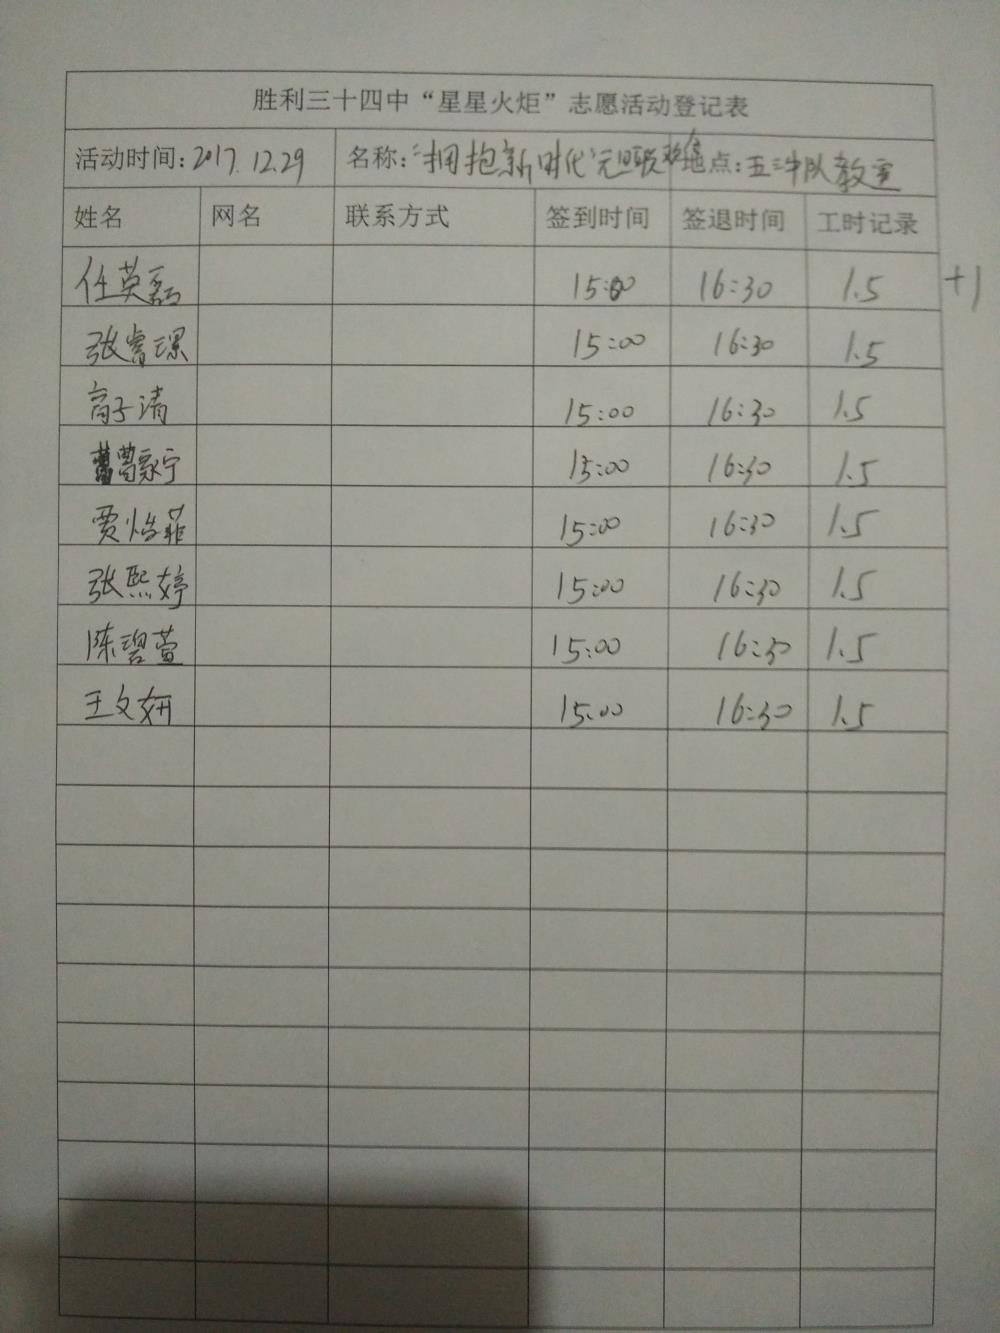 胜利三十四中“星星火炬”志愿活动登记表
活动时间:2017.12.29 名称:“拥抱新时代”元旦联欢会 地点:五三中队教室
姓名 网名 联系方式 签到时间 签退时间 工时记录
任英磊 15:00 16:30 1.5 +1
张睿璟 15:00 16:30 1.5
高子清 15:00 16:30 1.5
曹家宁 15:00 16:30 1.5
贾怡菲 15:00 16:30 1.5
张熙婷 15:00 16:30 1.5
陈碧萱 15:00 16:30 1.5
王文妍 15:00 16:30 1.5